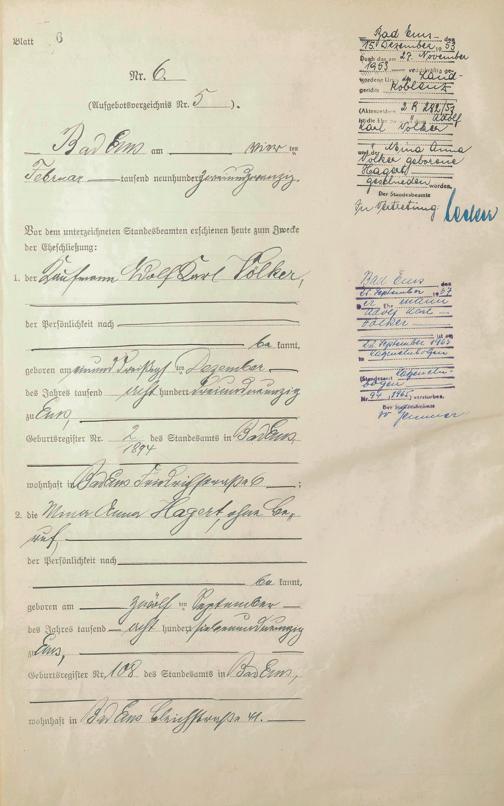 Blatt 6
Nr. 6
(Aufgebotsverzeichnis Nr. 5 ).
Bad Ems am vier ten
Februar tausend neunhundert zweiundzwanzig.
Vor dem unterzeichneten Standesbeamten erschienen heute zum Zwecke
der Eheschließung:
1. der Kaufmann Adolf Karl Völker,
der Persönlichkeit nach
be kannt,
geboren am ten Dezember
des Jahres tausend acht hundert dreiundneunzig
zu Ems,
Geburtsregister Nr. 2 des Standesamts in Bad Ems,
1894
wohnhaft in Bad Ems Friedrichstraße 6 ;
2. die Mina Anna Hagert, ohne Be-
ruf,
der Persönlichkeit nach
be kannt,
geboren am zwölf ten September
des Jahres tausend acht hundert siebenundneunzig
zu Ems,
Geburtsregister Nr. 108 des Standesamts in Bad Ems,
wohnhaft in Bad Ems Bleichstraße 41.
Bad Ems den
15. Dezember 1953
Durch das am 27. November
1953 verkündete
Urteil des Land-
gerichts Koblenz
(Aktenzeichen 2 R 282/53
ist die Ehe Adolf
Karl Völker
und der Mina Anna
Völker geborene
Hagert
geschieden worden.
Der Standesbeamte
In Vertretung
Bad Ems den
September 1967
Ehemann
Adolf Karl
Völker
ist am
September 1965
in Katzenelnbogen
(Standesamt Katzeneln-
bogen
Nr. 94/1965) verstorben.
Der Standesbeamte